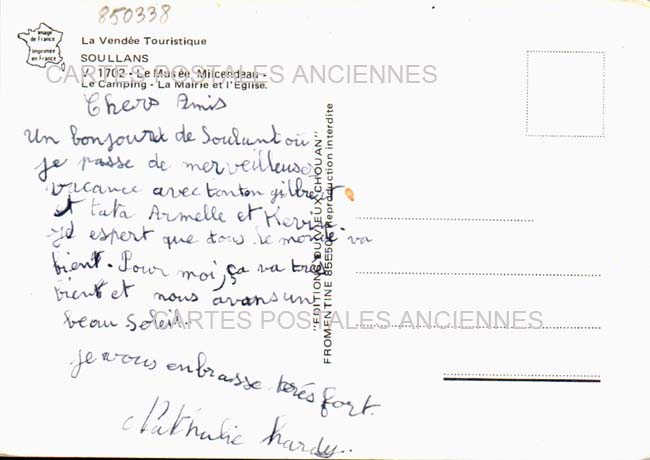 850338
Image
de France
Imprimée
en France
La Vendée Touristique
SOULLANS
V. 1702 - Le Musée, Milcendeau -
Le Camping - La Mairie et l'Église.
CARTES POSTALES ANCIENNES
Chers Amis
un bonjours de Soulant où
je passe de merveilleuse
vacance avec tonton gilbert
et tata Armelle et Kevin.
j'd espert que tous le monde va
bient. Pour moi, ça va très
bient et nous avans un
beau soleil.
CARTES POSTALES ANCIENNES
je vous enbrasse très fort.
Nathalie hardy..
"EDITIONS DU VIEUX CHOUAN"
FROMENTINE 85550 Reproduction interdite